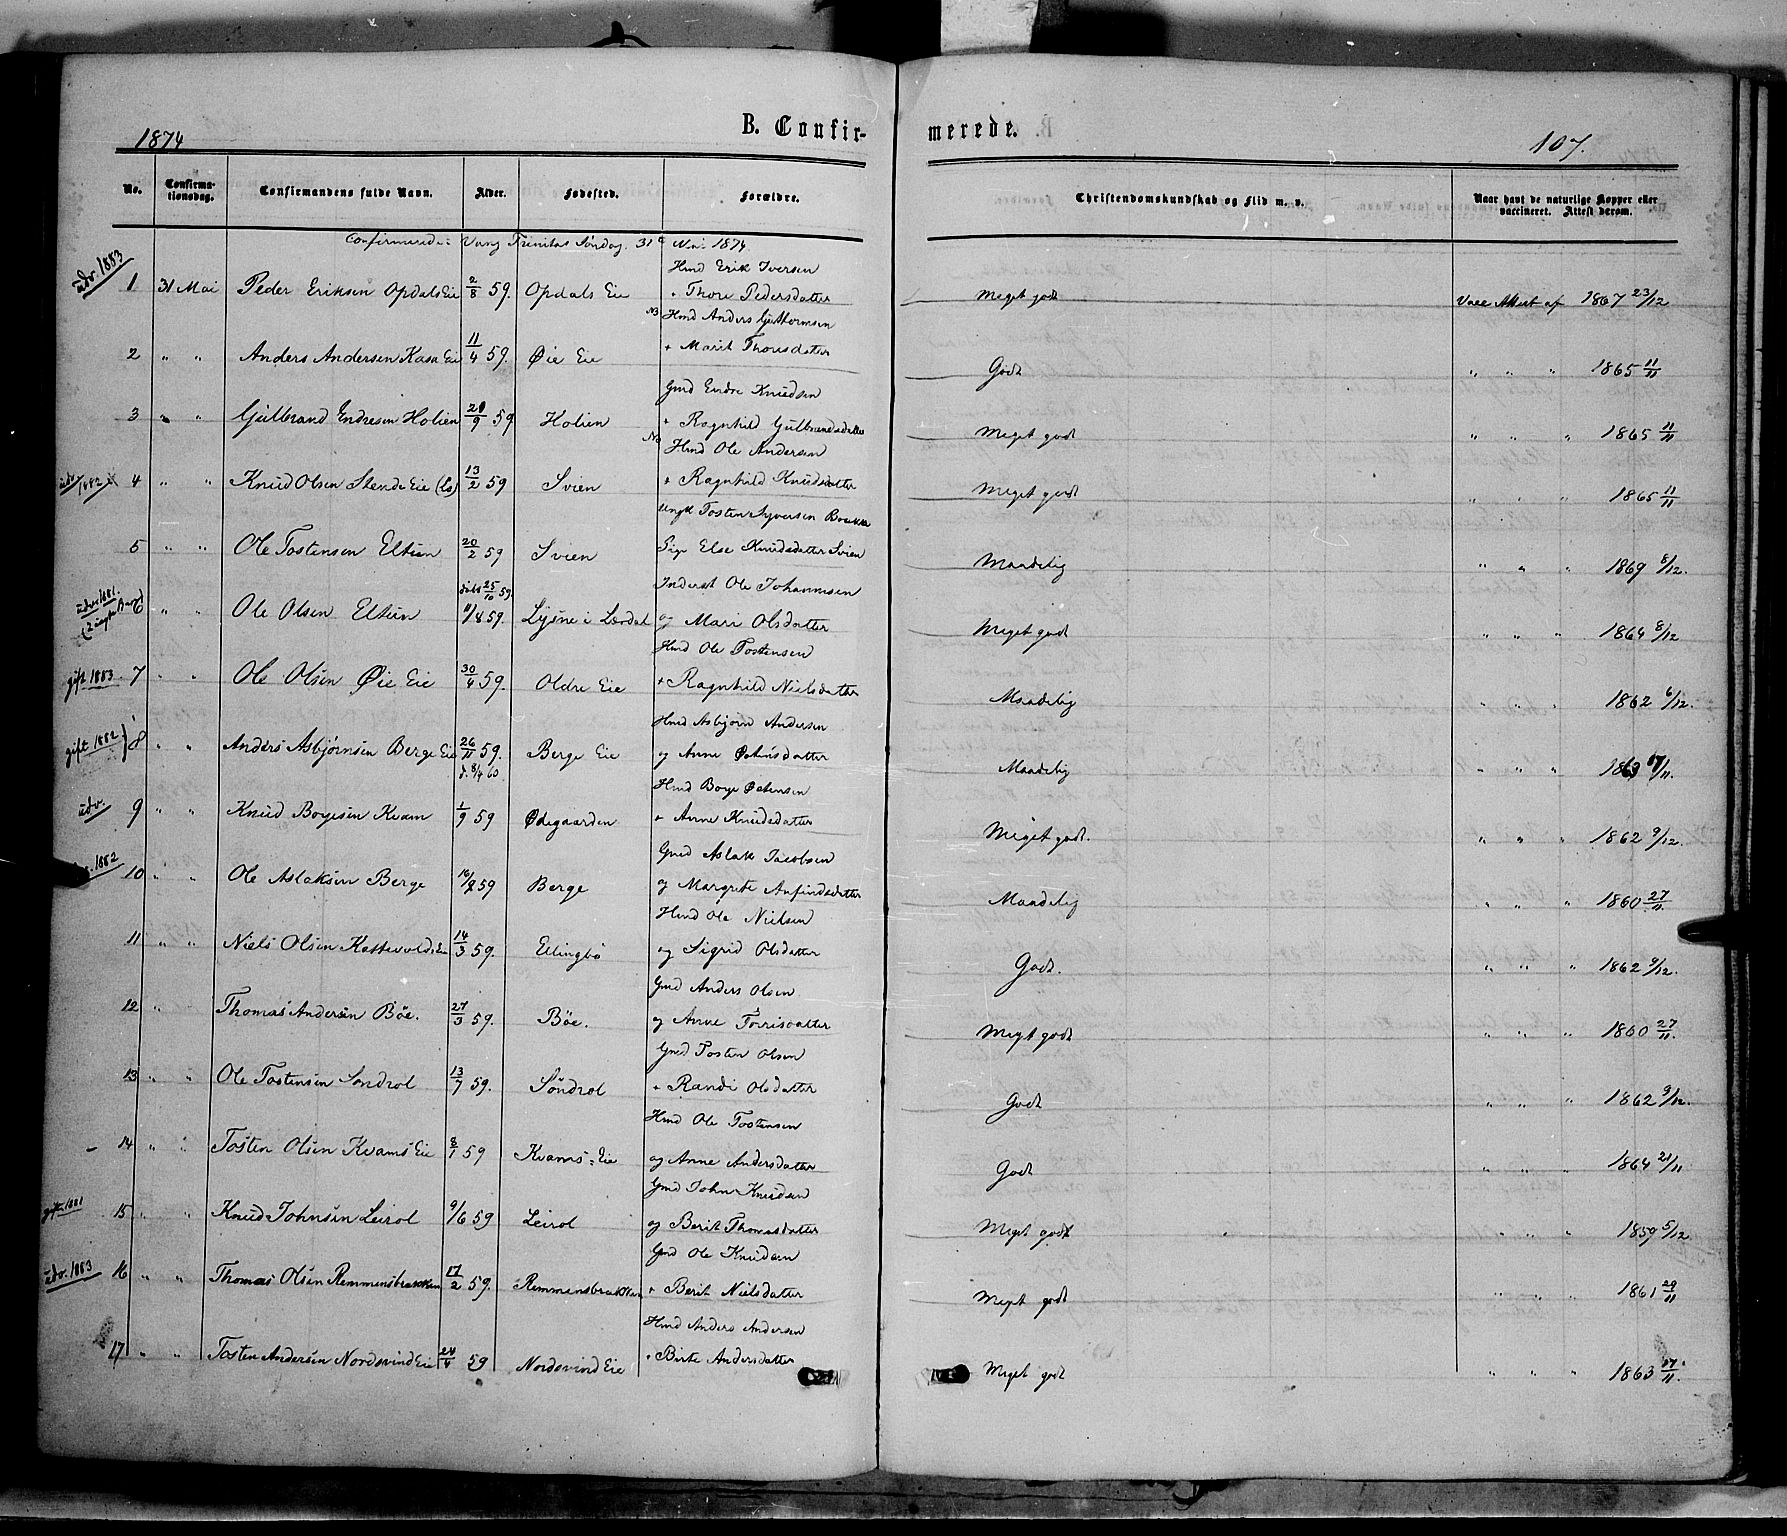 1874 B. Confir- merede. 107.
No. Confirma-tionsdag. Confirmandens fulde Navn. Alder. Fødested. Forældre. Christendomskundskab og Flid m. v. Naar havt de naturlige Kopper eller vaccineret. Attest derom.
Confirmerede i Vang Trinitas Søndag 31 Mai 1874.
udv. 1883
Hmd Erik Iversen
1 31 Mai Peder Eriksen Opdals Eie 2/8 59. Opdals Eie " Thore Pedersdatter Meget godt Vacc Attest af 1867 23/12
NB Hmd Anders Guttormsen
2 " " Anders Andersen Kasa Eie 11/4 59. Øie Eie + Marit Thoresdatter Godt " " " 1865 11/11
Gmd Endre Knudsen
3 " " Gulbrand Endresen Holien 21/9 59. Holien + Ragnhild Gulbrandsdatter Meget godt " " " 1865 11/11
NB Hmd Ole Andersen
udv 1882
4 " " Knud Olsen Stende Eie 13/2 59 Svien + Ragnhild Knudsdatter Meget godt " " " 1865 11/11
Ungk Tosten Syversen
5 " " Ole Tostensen Eltun 20/2 59 Svien Pige Else Knudsdatter Svien Maadelig " " " 1869 8/12.
døbt 25/10 59. Inderst Ole Johannesen
udv 1881.
6 " " Ole Olsen Eltun 11/8 59. Ljøsne i Lærdal og Mari Olsdatter Meget godt " " " 1864 8/12
Hmd Ole Tostensen
gift 1883. 7 " " Ole Olsen Øie Eie 30/4 59. Oldre Eie + Ragnhild Nielsdatter Maadelig " " " 1862 6/12.
Hmd Asbjørn Andersen
gift 1882. 8 " " Anders Asbjørnsen Berge Eie 26/11 59. Berge Eie og Anne Østensdatter Maadelig " " " 1863 17/11.
d. 8/4 60 Hmd Boye Østensen
udv. 9 " " Knud Boyesen Kvam 1/9 59 Ødegaarden + Anne Knudsdatter Meget godt. " " " 1862 9/12.
1882 Gmd Aslak Jacobsen
10 " " Ole Aslaksen Berge 16/2 59 Berge og Margrete Anfindsdatter Maadelig " " 1860 27/11.
Hmd Ole Nielsen
11 " " Niels Olsen Kattevolds Eie 14/3 59. Ellingbø og Sigrid Olsdatter Godt. " " " 1862 9/12.
Gmd Anders Olsen
12 " " Thomas Andersen Bøe. 27/3 59. Bøe. og Anne Torrisdatter Meget godt " " " 1860 27/11.
Gmd Tosten Olsen
13 " " Ole Tostensen Søndrol 13/7 59. Søndrol + Randi Olsdatter Godt " " " 1862 9/12.
Hmd Ole Tostensen
14 " " Tosten Olsen Kvams Eie 8/1 59 Kvams Eie og Anne Andersdatter Godt " " " 1864 21/11
Gmd John Knudsen
gift 1881 15 " " Knud Johnsen Leirol 9/6 59 Leirol og Berit Thomasdatter Meget godt " " " 1859 5/12
Gmd Ole Knudsen
udv. 1883 16 " " Thomas Olsen Remmensbrakken 17/2 59. Remmensbrakken + Berit Nielsdatter Meget godt " " " 1861 29/11
Hmd Anders Andersen
17 " " Tosten Andersen Nordsvind Eie 24/4 59 Nordsvind Eie " Birte Andersdatter Meget godt " " " 1863 17/11.